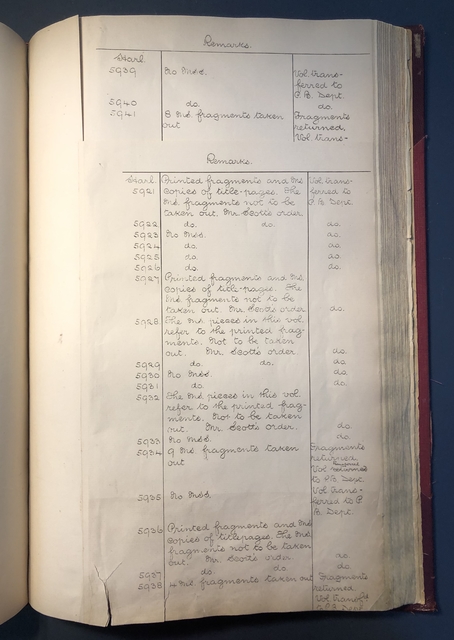 Remarks.
Harl.
5939 No Mss. Vol. trans-
ferred to
P. B. Dept.
5940 do. do.
5941 8 Ms. fragments taken Fragments
out returned.
Vol. trans-
Remarks.
Harl. Printed fragments and Ms. Vol. trans-
5921 copies of title-pages. The ferred to
Ms. fragments not to be P. B. Dept.
taken out. Mr. Scott's order
5922 do. do. do.
5923 No Mss. do.
5924 do. do.
5925 do. do.
5926 do. do.
5927 Printed fragments and Ms.
copies of title-pages. The
Ms. fragments not to be
taken out. Mr. Scott's order do.
5928 The Ms. pieces in this vol.
refer to the printed frag-
ments. Not to be taken
out. Mr. Scott's order. do.
5929 do. do. do.
5930 No Mss. do.
5931 do. do.
5932 The Ms. pieces in this vol.
refer to the printed frag-
ments. Not to be taken
out. Mr. Scott's order. do.
5933 No Mss. do.
5934 9 Ms. fragments taken Fragments
out returned.
Vol returned
to P.B. Dept.
5935 No Mss Vol trans-
ferred to P.
B. Dept.
5936 Printed fragments and Ms.
copies of titlepages. The Ms.
fragments not to be taken
out. Mr. Scott's order do.
5937 do. do. do.
5938 4 Ms. fragments taken out Fragments
returned
Vol. transf.d
P.B. Dept